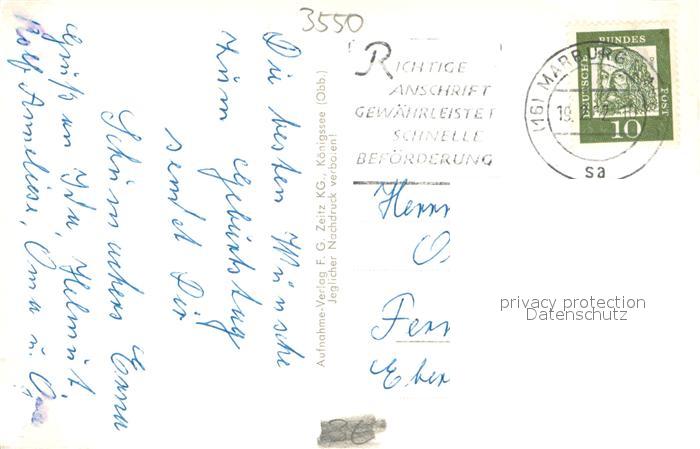 3550
Die besten Wünsche
zum Geburtstag
sendet Dir
Erna
Gruß an Ida, Helmut
Rolf, Anneliese, Oma u. Opa
Aufnahme-Verlag F. G. Zeitz KG., Königssee (Obb.)
Jeglicher Nachdruck verboten!
RICHTIGE
ANSCHRIFT
GEWÄHRLEISTET
SCHNELLE
BEFÖRDERUNG
(16) MARBURG
19.
sa
DEUTSCHE BUNDES POST
10
Herrn
O
Fern
Eber
privacy protection
Datenschutz